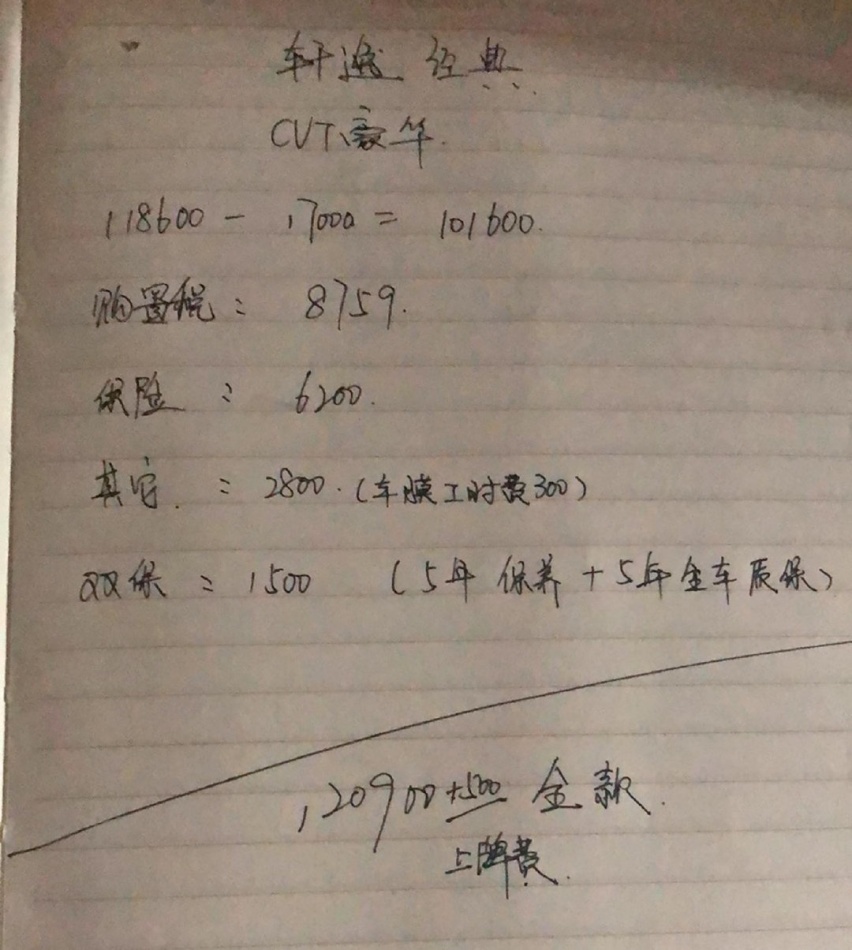 轩逸 经典
CVT豪华.
118600 - 17000 = 101600.
购置税: 8759.
保险: 6200.
其它. : 2800. (车膜工时费300)
双保: 1500 (5年保养+5年全车质保)
120900+500 全款.
上牌费.